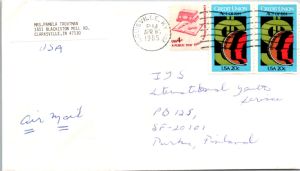 MRS.PAMELA TROUTMAN
1651 BLACKISTON MILL RD.
CLARKSVILLE, IN 47130
USA
air mail
PM
APR
1985
USA 4c
CREDIT UNION
USA 20c
CREDIT UNION
USA 20c
IYS
International Youth
Service
PO 125,
SF-20101
Turku, Finland